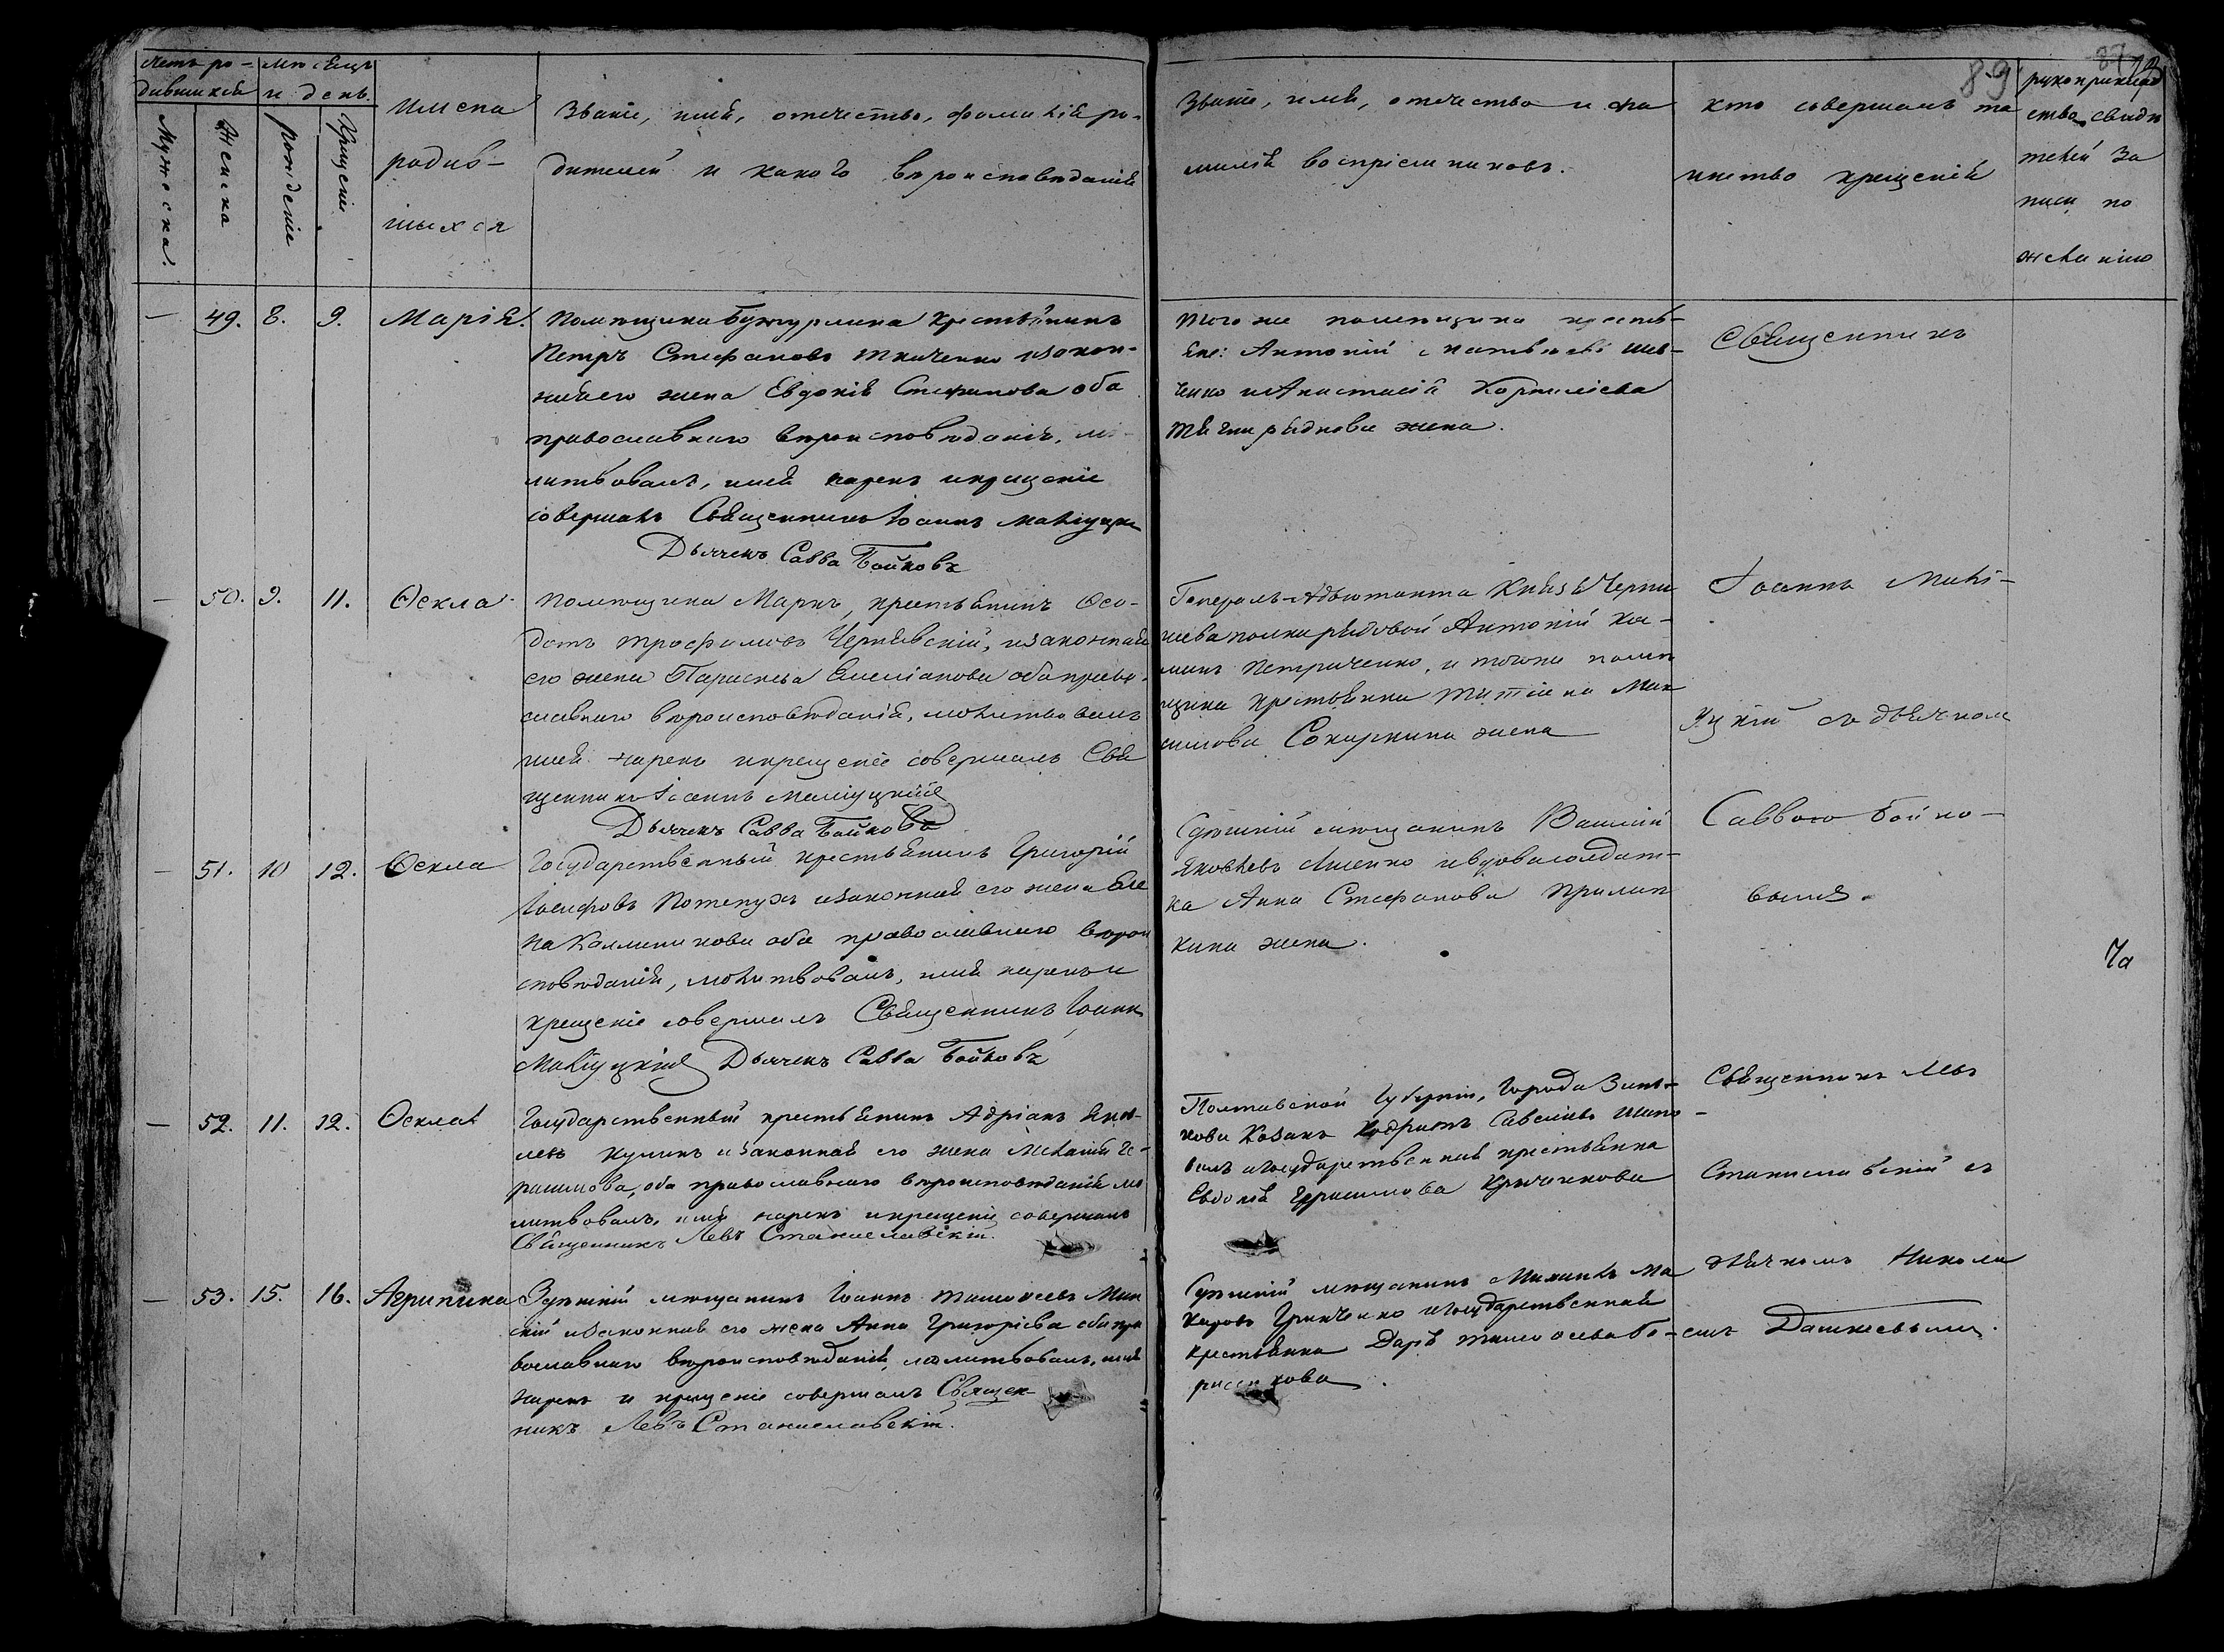 89
Счетъ ро-
дившихся
Мѣсяцъ
и день.
Мужеска.
Женска
рожденіе
Крещеніе
Имена
родив-
шихся
Званіе, имя, отечество, фамилія ро-
дителей и какого вѣроисповѣданія
Званіе, имя, отечество и фа
милія воспріемниковъ.
Кто совершалъ та
инство крещенія
рукоприклад
ство свидѣ
телей за
писи по
желанію
— 49. 8. 9. Марія.
Помѣщика Бутурлина крестьянинъ
Петръ Стефановъ Ткаченко и закон-
ная его жена Евдокія Стефанова оба
православнаго вѣроисповѣданія, мо-
литвовалъ, имя нарекъ и крещеніе
совершалъ Священникъ Іоаннъ
Дьячекъ Савва Бойковъ
Того же помѣщика кресть-
яне: Антоній Матвѣевъ Шев-
ченко и Анастасія Корнилієва
жена.
Священникъ
— 50. 9. 11. Ѳекла.
Помѣщика Маркъ, крестьянинъ Ѳео-
дотъ Трофимовъ Чернявскій, и законная
его жена Параскева Емеліанова оба право-
славнаго вѣроисповѣданія, молитвовалъ
имя нарекъ и крещеніе совершалъ Свя
щенникъ Іоаннъ
Дьячекъ Савва Бойковъ
Генералъ-Адъютанта Князя Черны
шева полка рядовой Антоній Ка-
линъ Петриченко, и тогоже помѣ
щика крестьянка Татіана Мак
симова Сокиркина жена
Іоаннъ Малі-
уцкій съ дьячкомъ
Саввою Бойко-
вымъ.
— 51. 10 12. Ѳекла
Государственный крестьянинъ Григорій
Іосифовъ Потепухъ и законная его жена Еле
на Каллиникова оба православнаго вѣрои
сповѣданія, молитвовалъ, имя нарекъ и
крещеніе совершалъ Священникъ Іоаннъ
Дьячекъ Савва Бойковъ
Сумскій мѣщанинъ Василій
Яковлевъ Лисенко и вдова солдат-
ка Анна Стефанова Прилип
кина жена.
7а
— 52. 11. 12. Ѳекла
Государственный крестьянинъ Адріанъ Яков-
левъ Куликъ и законная его жена Меланія Ге-
расимова, оба православнаго вѣроисповѣданія мо
литвовалъ, имя нарекъ и крещеніе совершалъ
Священникъ Левъ Станиславскій.
Полтавской Губерніи, Города Зинь-
кова Козакъ Савеліевъ Шапо-
валъ и государственная крестьянка
Евдокія Герасимова Крючкова
Священникъ Левъ
Станиславскій съ
— 53. 15. 16. Агрипина
Здѣшній мѣщанинъ Іоаннъ Тимофеевъ Мин
скій и законная его жена Анна Григоріева оба пра
вославнаго вѣроисповѣданія, молитвовалъ, имя
нарекъ и крещеніе совершалъ Священ-
никъ Левъ Станиславскій.
Сумскій мѣщанинъ Михаилъ Ма
каровъ Гринченко и государственная
крестьянка Дарья Тимофеева Бо-
рисенкова.
дьячкомъ Никола
емъ Дашкевымъ.